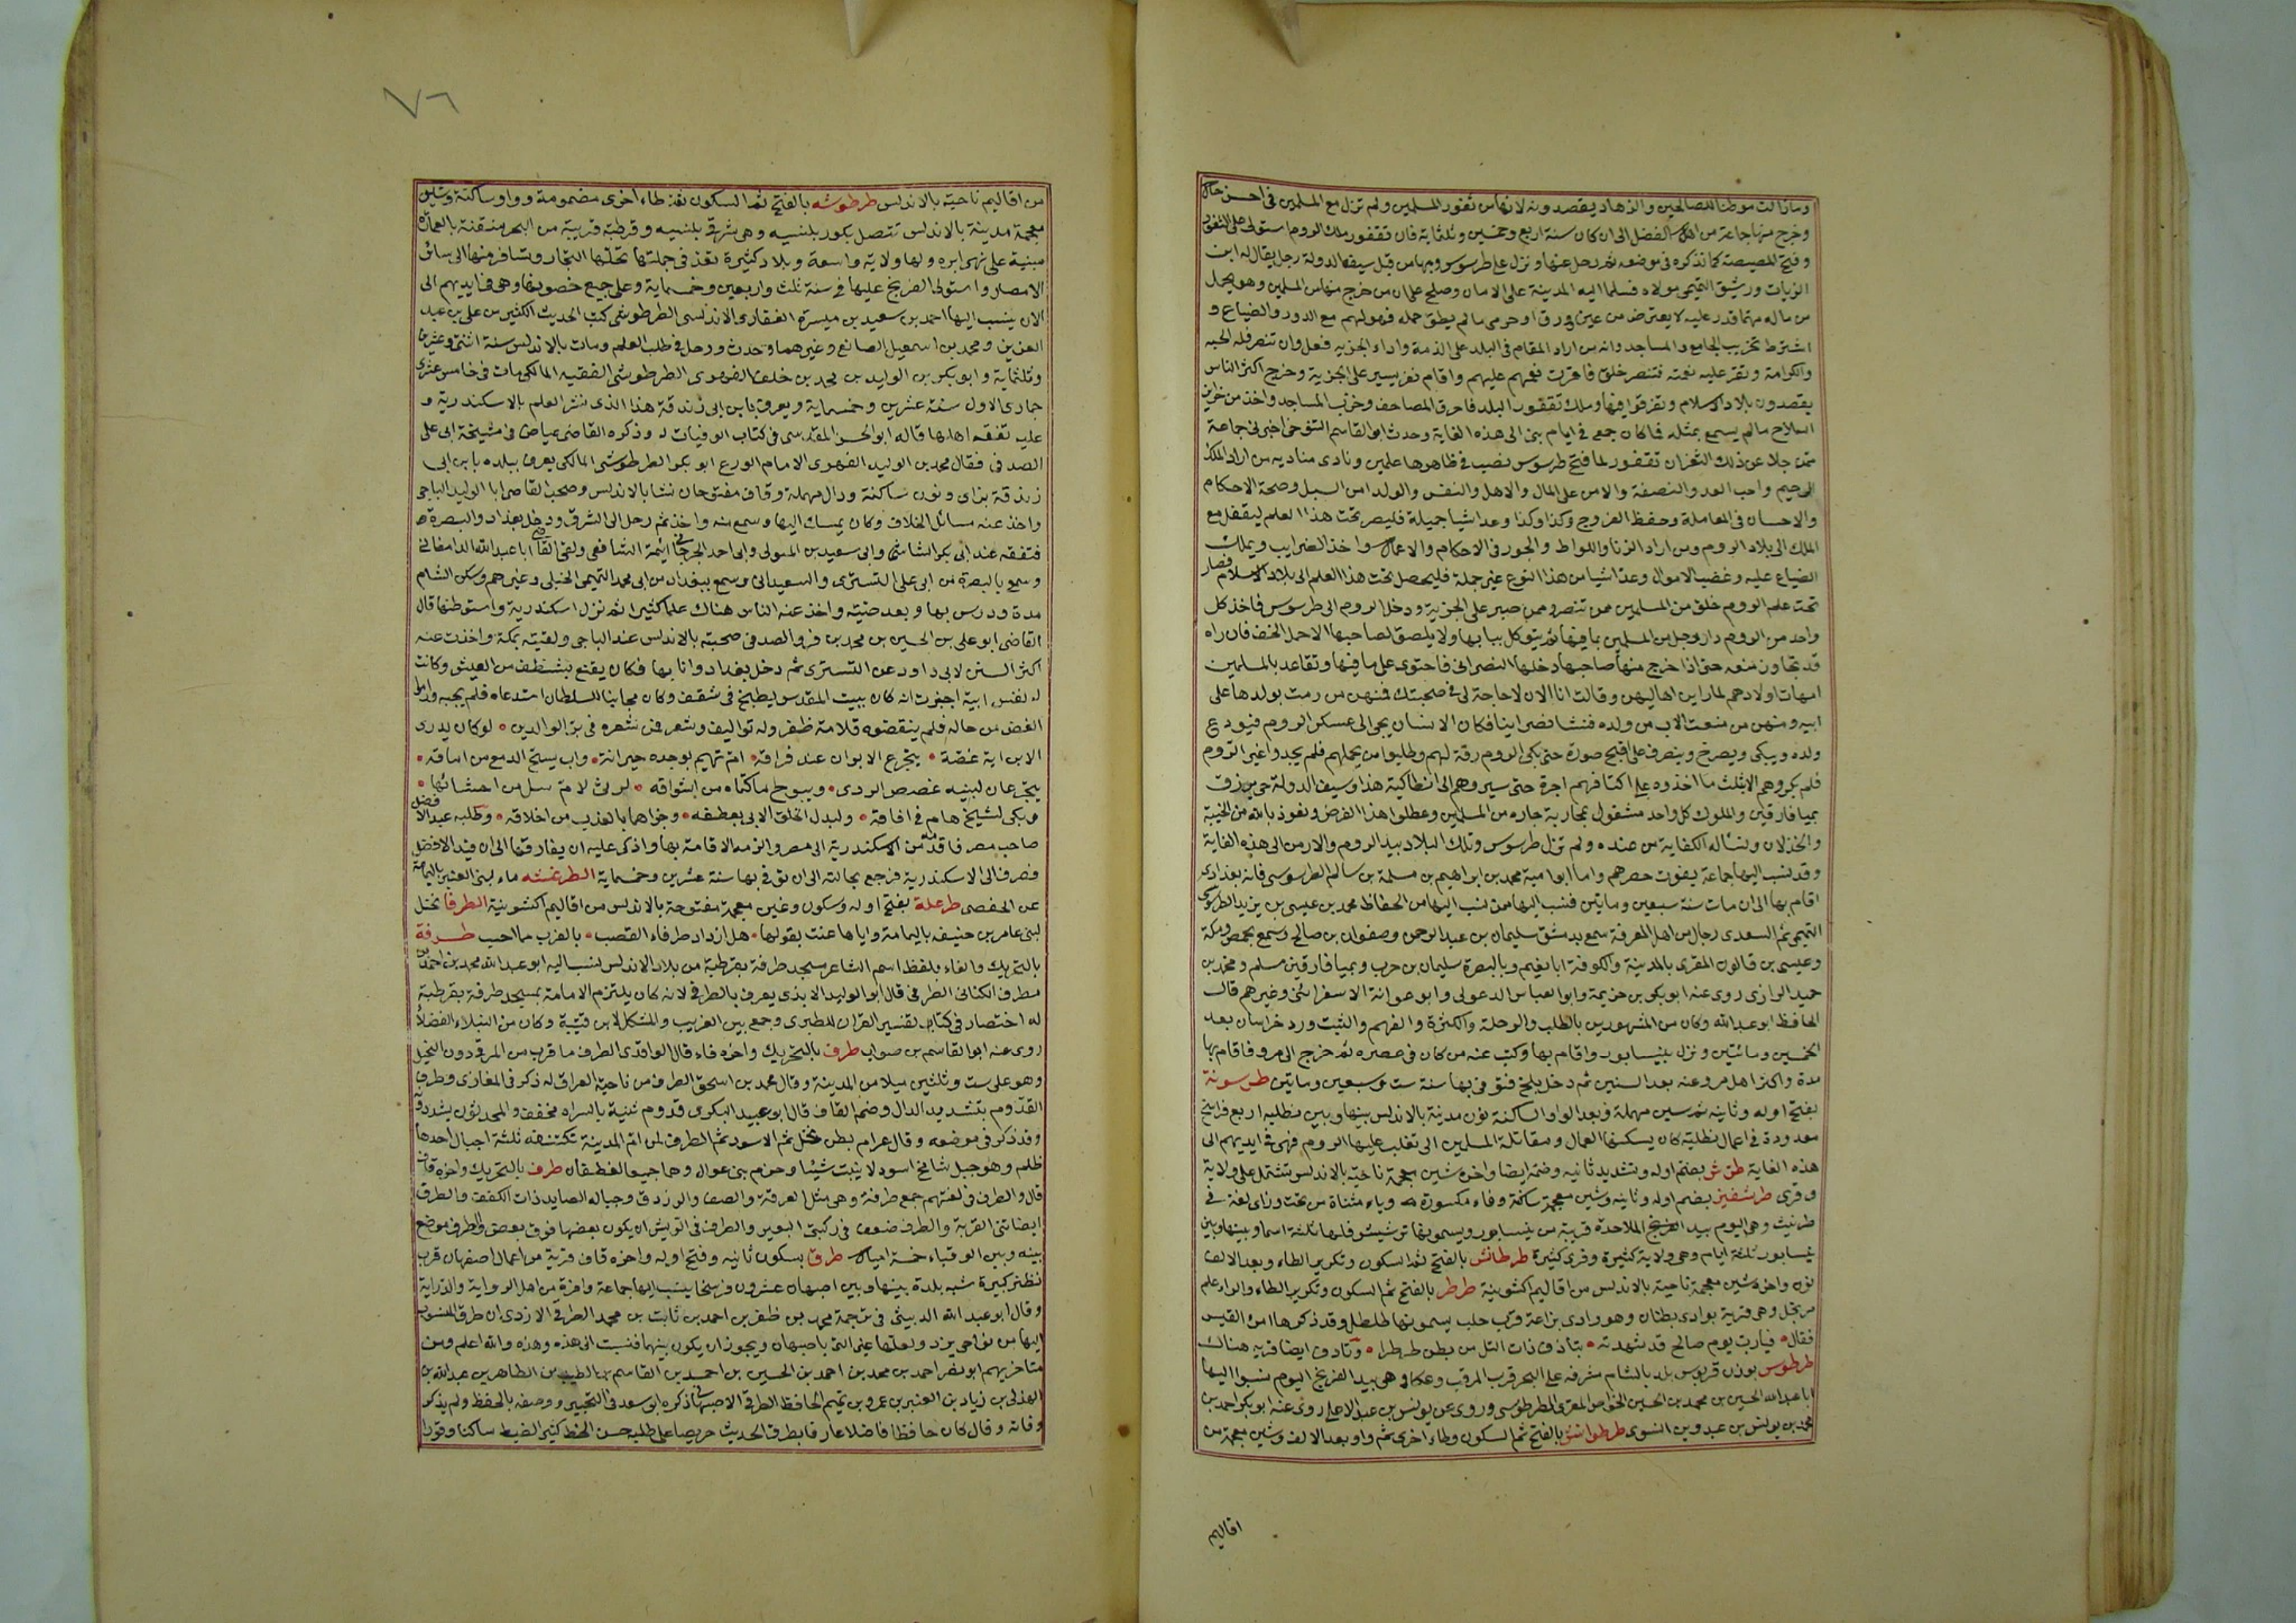 وما زالت موطنا للصالحين والزهاد يقصدونه لانها من ثغور المسلمين ولم تزل مع المسلمين في احسن حال
وخرج منها جماعة من اهل الفضل الى ان كان سنة اربع وخمسين وثلثماية فان نقفور ملك الروم استولى على الثغور
وفتح المصيصة كما نذكره في موضعه ثم رحل عنها ونزل على طرسوس وبها من قبل سيف الدولة رجل يقال له ابن
الزيات ورشيق النسيمى مولاه فسلما اليه المدينة على الامان وصلح على ان من خرج منها من المسلمين وهو يحمل
من ماله مهما قدر عليه لا يعترض من عين وورق او حرمى ما لم يطق حمله فهو لهم مع الدور والضياع و
اشترط تخريب الجامع والمساجد وانه من اراد المقام في البلد على الذمة واداء الجزية فعل وان تنصر فله الحبه
والكرامة وتقر عليه نعمته فتنصر خلق فاقرت نعمهم عليهم واقام نفر يسير على الجزية وخرج اكثر الناس
يقصدون بلاد الاسلام وتفرقوا فيها وملك نقفور البلد فاحرق المصاحف وخرب المساجد واخذ من خزاين
السلاح ما لم يسمع بمثله فاكان جمع في ايام بنى الى هذه الغاية وحدث ابو القاسم التنوخى اخبرنى جماعة
ممن جلا عن ذلك الثغر ان نقفور لما فتح طرسوس نصب في ظاهرها علمين ونادى مناديه من اراد الملك
الرحيم واحب العدل والنصفة والامن على المال والاهل والنفس والولد وامن السبل وصحة الاحكام
والاحسان في المعاملة وحفظ الفروج وكذا وكذا وعد اشيا جميلة فليصر تحت هذا العلم ليقفل مع
الملك الى بلاد الروم ومن اراد الزنا واللواط والجور في الاحكام والاعمال واخذ الضرايب وتملك
الضياع عليه وغصب الاموال وعد اشيا من هذا النوع غير جملة فليحصل تحت هذا العلم الى بلاد الاسلام فصار
تحت علم الروم خلق من المسلمين ممن تنصر وممن صبر على الجزية ودخل الروم الى طرسوس فاخذ كل
واحد من الروم دار رجل من المسلمين بما فيها ثم يتوكل ببابها ولا يطلق لصاحبها الا حمل الخف فان راه
قد تجاوز منعه حتى اذا خرج منها صاحبها دخلها النصرانى فاحتوى على ما فيها وتقاعد بالمسلمين
امهات اولادهم لما راين اهاليهن وقالت انا الان لا حاجة لى في صحبتك فمنهن من رمت بولدها على
ابيه ومنهن من منعت الاب من ولده فنشا نصرانيا فكان الانسان يجى الى عسكر الروم فيودع
ولده ويبكى ويصرخ وينصرف على اقبح صورة حتى بكى الروم رقة لهم وطلبوا من يحملهم فلم يجدوا غير الروم
فلم يكروهم الا بثلث ما اخذوه على اكتافهم اجرة حتى سيروهم الى انطاكية هذا وسيف الدولة حى يرزق
بميافارقين والملوك كل واحد مشغول بمحاربة جاره من المسلمين وعطلوا هذا الفرض ونعوذ بالله من الخيبة
والخذلان ونساله الكفاية من عنده ولم تزل طرسوس وتلك البلاد بيد الروم والارمن الى هذه الغاية
وقد نسب اليها جماعة يفوت حصرهم واما ابو امية محمد بن ابراهيم بن مسلمة بن سالم الطرسوسى فانه بغدادى
اقام بها الى ان مات سنة سبعين وماتين فنسب اليها ممن نسب اليها من الحفاظ محمد بن عيسى بن يزيد الطرسوسى
التميمى ثم السعدى رجال من اهل المعرفة سمع بدمشق سليمان بن عبد الرحمن وصفوان بن صالح وسمع بحمص ومكة
وعيسى بن قالون المقرى بالمدينة والكوفة ابا نعيم وبالبصرة سليمان بن حرب وبميافارقين مسلم ومحمد بن
حميد الرازى روى عنه ابو بكر بن خزيمة وابو العباس الدغولى وابو عوانة الاسفراينى وغيرهم قال
الحافظ ابو عبد الله وكان من المشهورين بالطلب والرحلة والكثرة والفهم والثبت ورد خراسان بعد
الخمسين وماتين ونزل بنيسابور واقام بها وكتب عنه من كان في عصره ثم خرج الى مرو فاقام بها
مدة واكثر اهل مرو عنه بعد الستين ثم دخل بلخ فتوفى بها سنة ست وسبعين وماتين طرسونة
بفتح اوله وثانيه ثم سين مهملة وبعد الواو الساكنة نون مدينة بالاندلس بينها وبين تطيلة اربع فراسخ
معدودة في اعمال تطيلة كان يسكنها العمال ومقاتلة المسلمين الى تغلب عليها الروم فهى في ايديهم الى
هذه الغاية طرش بضم اوله وتشديد ثانيه وضمه ايضا واخره شين معجمة ناحية بالاندلس تشتمل على ولاية
وقرى طرشفيز بضم اوله وثانيه وشين معجمة ساكنة وفاء مكسورة وياء مثناة من تحت وزاى لغة في
طرثيث وهى اليوم بيد الملاحدة قريبة من نيسابور ويسمونها ترشيش فلها ثلثة اسما وبينها وبين
نيسابور ثلثة ايام وهى ولاية كثيرة وقرى كثيرة طرطانش بالفتح ثم السكون وتكرير الطاء وبعد الالف
نون واخره شين معجمة ناحية بالاندلس من اقاليم اكشونية طرطر بالفتح ثم السكون وتكرير الطاء والراء علم
مرتجل وهى قرية بوادى بطنان وهو وادى بزاعة قرب حلب يسمونها طلطل وقد ذكرها امرؤ القيس
فقال فيا رب يوم صالح قد شهدته بتاذف ذات التل من بطن طرطرا وتاذف ايضا قرية هناك
طرطوس بوزن قربوس بلد بالشام مشرفة على البحر قرب المرقب وعكا وهى بيد الفرنج اليوم نسبوا اليها
ابا عبد الله الحسين بن محمد بن الحسين الخواص المقرى الطرطوسى وروى عن يونس بن عبد الاعلى روى عنه ابو بكر احمد بن
محمد بن يونس بن عبدوس النسوى طرطوانش بالفتح ثم السكون وطاء اخرى ثم واو بعد الالف وشين معجمة من
اقاليم
٧٦
من اقاليم ناحية بالاندلس طرطوشه بالفتح ثم السكون ثم طاء اخرى مضمومة وواو ساكنة وشين
معجمة مدينة بالاندلس تتصل بكور بلنسيه وهى شرقى بلنسيه وقرطبة قريبة من البحر متقنة بالعمارة
مبنية على نهر ابره ولها ولاية واسعة وبلاد كثيرة تعد في جملتها تحلها التجار وتسافر منها الى سائر
الامصار واستولى الفرنج عليها في سنة ثلث واربعين وخمسماية وعلى جميع حصونها وهى في ايديهم الى
الان ينسب اليها احمد بن سعيد بن ميسرة الغفارى الاندلسى الطرطوشى كتب الحديث الكثير من على بن عبد
العزيز ومحمد بن اسمعيل الصانع وغيرهما وحدث ورحل في طلب العلم ومات بالاندلس سنة اثنتى وعشرين
وثلثماية وابو بكر بن الوليد بن محمد بن خلف الفهرى الطرطوشى الفقيه المالكى مات في خامس عشرى
جمادى الاول سنة عشرين وخمسماية ويعرف بابن ابى زندقة هذا الذى نشر العلم بالاسكندرية و
عليه تفقه اهلها قاله ابو الحسن المقدسى في كتاب الوفيات له وذكره القاضى عياض في مشيخة ابى على
الصدفى فقال محمد بن الوليد الفهرى الامام الورع ابو بكر الطرطوشى المالكى يعرف ببلده بابن ابى
زندقة بزاى ونون ساكنة ودال مهملة وقاف مفتوحان نشا بالاندلس وصحب القاضى ابا الوليد الباجى
واخذ عنه مسائل الخلاف وكان يميل اليها وسمع منه واخذ ثم رحل الى الشرق ودخل بغداد والبصرة
فتفقه عند ابى بكر الشاشى وابى سعيد بن المتولى وابى احمد الجرجانى ائمة الشافعى ولقى القاضى ابا عبد الله الدامغانى
وسمع بالبصرة من ابى على التسترى والسعيدانى وسمع ببغداد من ابى محمد التميمى الحنبلى وغيرهم وسكن الشام
مدة ودرس بها وبعد صيته واخذ عنه الناس هناك علما كثيرا ثم نزل اسكندرية واستوطنها قال
القاضى ابو على بن الحسين بن محمد بن فيره الصدفى صحبته بالاندلس عند الباجى ولقيته بمكة واخذت عنه
اكثر السنن لابى داود عن التسترى ثم دخل بغداد وانا بها فكان يقنع بشظف من العيش وكانت
له نفس ابية اخبرت انه كان ببيت المقدس يطبخ في شقف وكان مجانبا للسلطان استدعاه فلم يجبه وراموا
الغض من حاله فلم ينقصوه قلامة ظفر وله تواليف وشعر فمن شعره في بر الوالدين لو كان يدرى
الابن اية غصة يتجرع الابوان عند فراقه ام تهيم بوجده حيرانة واب يسح الدمع من اماقه
يتجرعان لبينه غصص الردى ويبوح ما كتماه من اشواقه لرثى لام سل من احشائها
وبكى لشيخ هام في افاقه ولبدل الخلق الابى بعطفه وجزاهما بالعذب من اخلاقه وطلبه عبد الافضل
صاحب مصر فاقدمه من الاسكندرية الى مصر والزمه الاقامة بها واذكى عليه ان يفارقها الى ان قيد الافضل
فصرف الى الاسكندرية فرجع بحالته الى ان توفى بها سنة عشرين وخمسماية الطرغشه ماء لبنى العنبر باليمامة
عن الحفصى طرغلة بفتح اوله وسكون وغين معجمة مفتوحة بالاندلس من اقاليم اكشونية الطرفا نخل
لبنى عامر بن حنيفه باليمامة واياها عنت بقولها هل ازداد طرفاء القصب بالقرب مما احب طرفة
بالتحريك والفاء بلفظ اسم الشاعر مسجد طرفة بقرطبة من بلاد الاندلس نسب اليه ابو عبد الله محمد بن احمد بن
مطرف الكنانى الطرفى قال ابو الوليد الابدى يعرف بالطرفى لانه كان يلتزم الامامة بمسجد طرفة بقرطبة
له اختصار في كتاب تفسير القران للطبرى وجمع بين الغريب والمشكل لابن قتيبة وكان من النبلاء الفضلاء
روى عنه ابو القاسم بن صواب طرف بالتحريك واخره فاء قال الواقدى الطرف ما قرب من المرقى دون النخيل
وهو على ست وثلثين ميلا من المدينة وقال محمد بن اسحق الطرف من ناحية العراق له ذكر في المغازى وطرف
القدوم بتشديد الدال وضم القاف قال ابو عبيد البكرى قدوم ثنية بالسراه مخفف والمحدثون يشددونه
وقد ذكر في موضعه وقال عرام بطن نخل ثم الاسود ثم الطرف لمن ام المدينة تكتنفه ثلثة اجبال احدها
ظلم وهو جبل شامخ اسود لا ينبت شيئا وحزم بنى عوال وهما جميعا لغطفان طرق بالتحريك واخره قاف
قال والطرق في لغتهم جمع طرقة وهى مثل العرقة والصف والرزدق وحباله الصايد ذات الكفف والطرق
ايضا ثنى القربة والطرق ضعف في ركبتى البعير والطرق في الريش ان يكون بعضها فوق بعض والطرق موضع
بينه وبين الوقباء خمسة اميال طرق بسكون ثانيه وفتح اوله واخره قاف قرية من اعمال اصفهان قرب
نطنز كبيرة شبه بلدة بينها وبين اصبهان عشرون فرسخا ينسب اليها جماعة وافرة من اهل الرواية والدراية
وقال ابو عبد الله الدبيثى في ترجمة محمد بن ظفر بن احمد بن ثابت بن محمد الطرقى الازدى ان طرق المنسوب
اليها من نواحى يزد ولعلها غير التى باصبهان ويجوز ان يكون بينهما فنسبت الى هذه وهذه والله اعلم ومن
متاخريهم ابو نصر احمد بن محمد بن احمد بن الحسين بن احمد بن القاسم بن الطيب بن الطاهر بن عبد الله بن
الهذلى بن زياد بن العنبر بن عمرو بن تميم الحافظ الطرقى الاصبهانى ذكره ابو سعد في التحبير ووصفه بالحفظ ولم يذكر
وفاته وقال كان حافظا فاضلا عارفا بطرق الحديث حريصا على طلبه حسن الخط كثير الضبط ساكنا وقورا